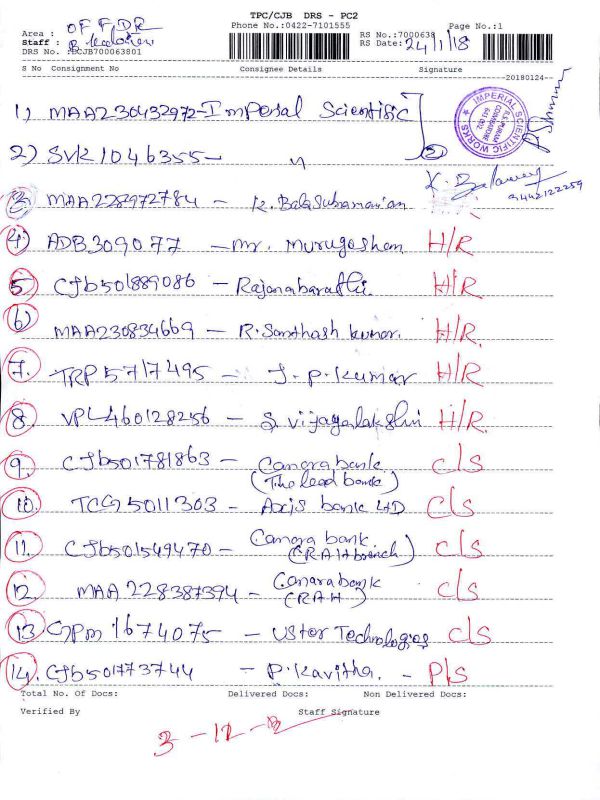 TPC/CJB DRS - PC2
Phone No.:0422-7101555
Page No.:1
Area : OF FDR
Staff :
DRS No. :BCJB700063801
RS No.:7000638
RS Date: 24/1/18
S No Consignment No Consignee Details Signature
20180124
1) MAA230432972 - Imperial Scientific
2) SVK1046355 - "
IMPERIAL SCIENTIFIC WORKS
COIMBATORE
641 002
3) MAA228972784 - K. Balasubramanian
9442122259
4) ADB309077 - Mr. Murugashan H/R
5) CJB501889086 - Rajanabarathi. H/R
6) MAA230834669 - R. Santhosh kumar. H/R
7. TRP5717495 - J. P. Kumar H/R
8. VPL460128256 - S. Vijayalakshmi H/R.
9. CJB501781863 - Canara bank C/S
(The lead bank)
10. TCG5011303 - Axis bank LTD C/S
11. CJB501549470 - Canara bank C/S
(CRAH branch)
12. MAA228387394 - Canara bank C/S
(CRAH)
13 GPM1674075 - Ustor Technologies C/S
14. CJB501773744 - P. Kavitha. - P/S
Total No. Of Docs: Delivered Docs: Non Delivered Docs:
Verified By Staff Signature
3-12-